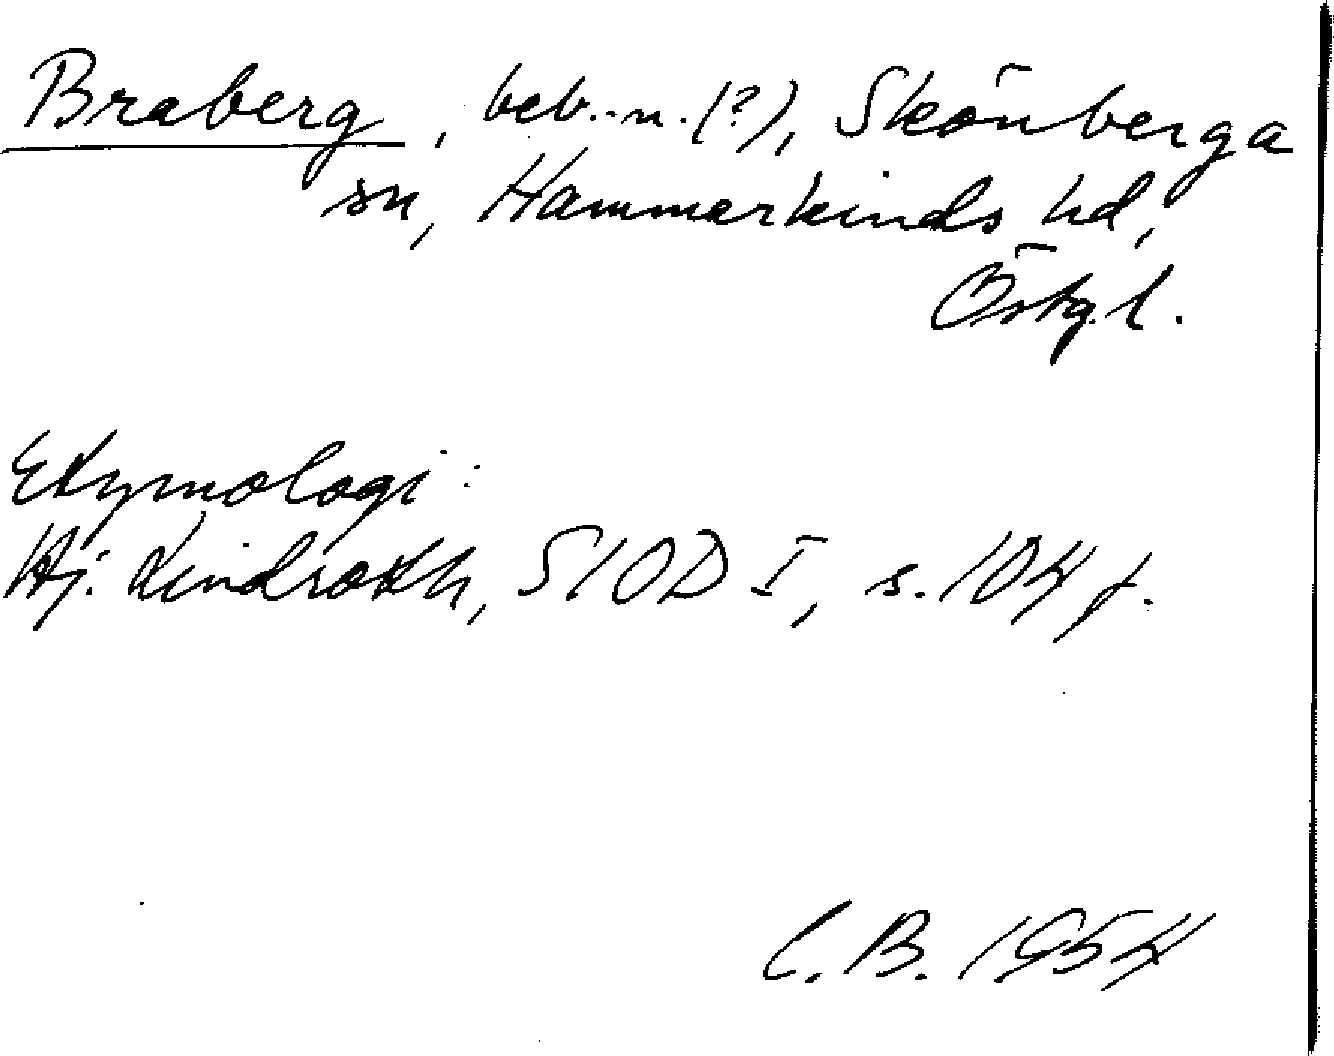 Braberg, beb.-n. (?), Skönberga
sn, Hammarkinds hd,
Östgl.
Etymologi:
Hj. Lindroth, SIOD I, s. 104 f.
C.B. 1954